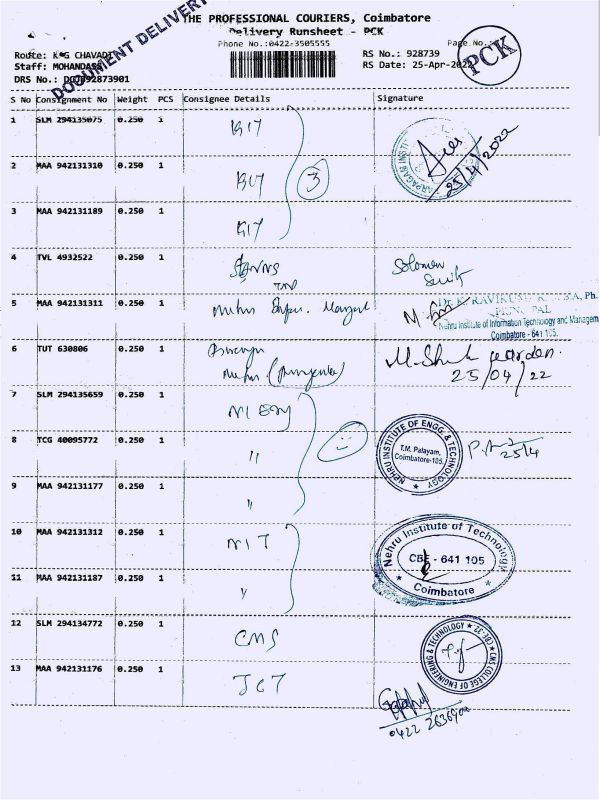 THE PROFESSIONAL COURIERS, Coimbatore
Delivery Runsheet - PCK
Phone No.:0422-3505555
DOCUMENT DELIVERY
Page No.:
PCK
Route: K G CHAVADI
Staff: MOHANDASS
RS No.: 928739
RS Date: 25-Apr-2022
DRS No.:
S No Consignment No Weight PCS Consignee Details Signature
1 SLM 294135075 0.250 1 KIT
25/4/2022
2 MAA 942131310 0.250 1 KIT
3
3 MAA 942131189 0.250 1 KIT
4 TVL 4932522 0.250 1
Solomon
5 MAA 942131311 0.250 1 Nehru
PRINCIPAL
Nehru Institute of Information Technology and Managem
Coimbatore - 641 105.
6 TUT 630806 0.250 1
Nehru
warden.
25/04/22
7 SLM 294135659 0.250 1
8 TCG 40095772 0.250 1 "
NEHRU INSTITUTE OF ENGG. & TECHNOLOGY
T.M. Palayam,
Coimbatore-105.
25/4
9 MAA 942131177 0.250 1 "
10 MAA 942131312 0.250 1 NIT
Nehru Institute of Technology
CBE - 641 105
Coimbatore
11 MAA 942131187 0.250 1 "
12 SLM 294134772 0.250 1 CMS
CMS COLLEGE OF ENGINEERING & TECHNOLOGY
13 MAA 942131176 0.250 1 JCT
0422 2636900